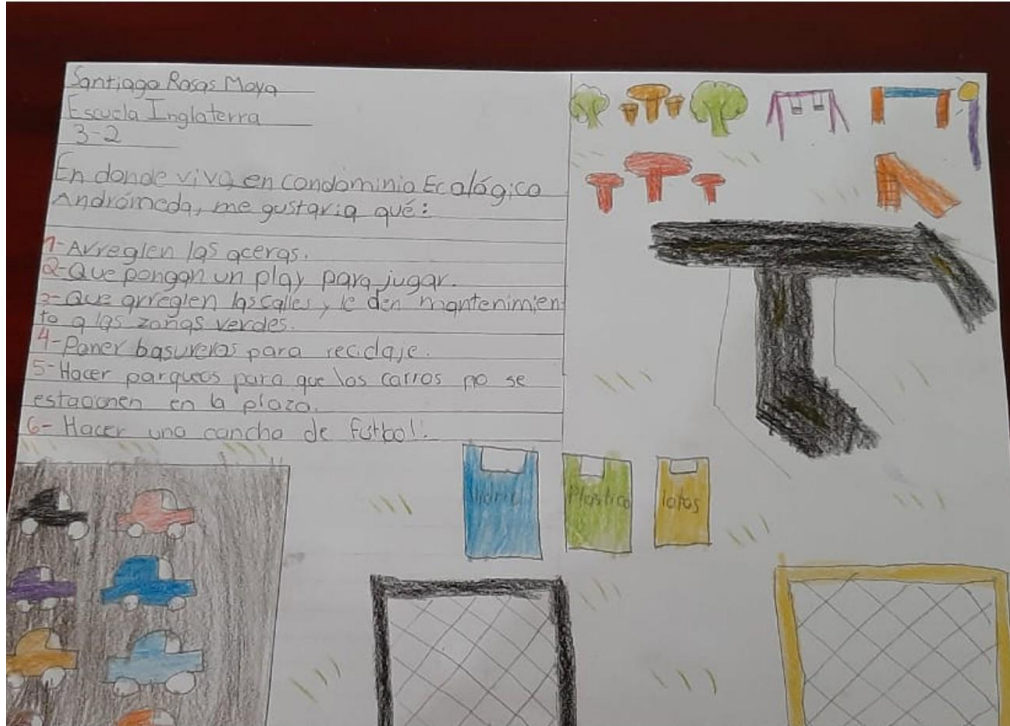 Santiago Rosas Moya
Escuela Inglaterra
3-2
En donde vivo, en condominio Ecológico
Andrómeda, me gustaria qué:
1-Arreglen las aceras.
2-Que pongan un play para jugar.
3-Que arreglen las calles y le den mantenimien
to a las zonas verdes.
4-Poner basureros para reciclaje.
5-Hacer parqueos para que los carros no se
estacionen en la plaza.
6-Hacer una cancha de futbol!.
Vidrio
Plastico
latas